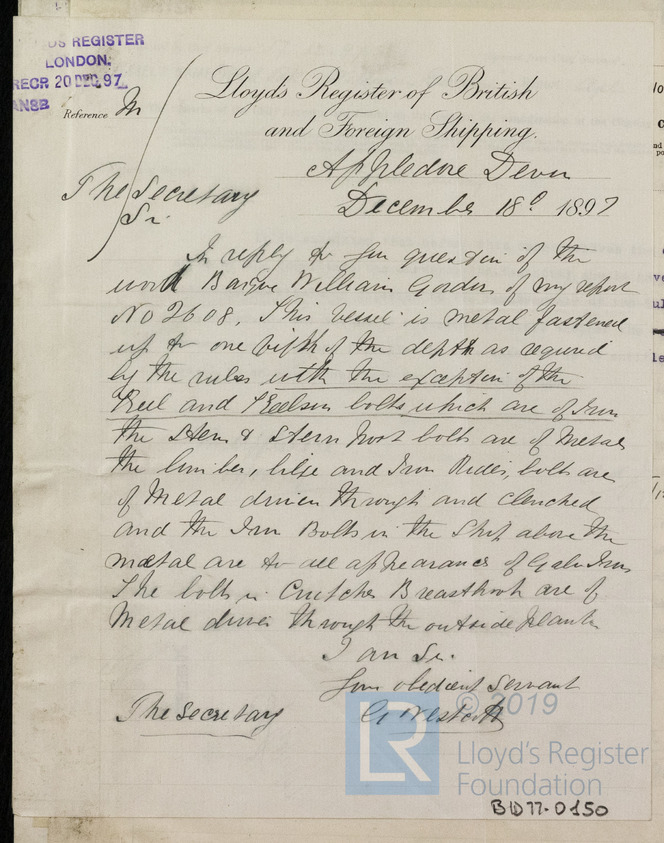 LLOYDS REGISTER
LONDON.
RECR 20 DEC.97
ANSB
Reference
Lloyd's Register of British
and Foreign Shipping.
Appledore Devon
December 18th 1897
The Secretary
Sir
In reply to your question of the
wood Barque William Gordon of my report
No 2608. This vessel is metal fastened
up to one fifth of the depth as required
by the rules with the exception of the
Keel and Keelson bolts which are of Iron
the Stem & Stern Post bolts are of Metal
the limber, bilge and Iron Rider, bolts are
of Metal driven through and clenched
and the Iron Bolts in the Ship above the
metal are to all appearances of Galv Iron
The bolts in Crutches Breasthook are of
Metal driven through the outside plank
I am Sir.
Your obedient Servant
G Westcott
The Secretary
© 2019
LR
Lloyd's Register
Foundation
BD77-0150